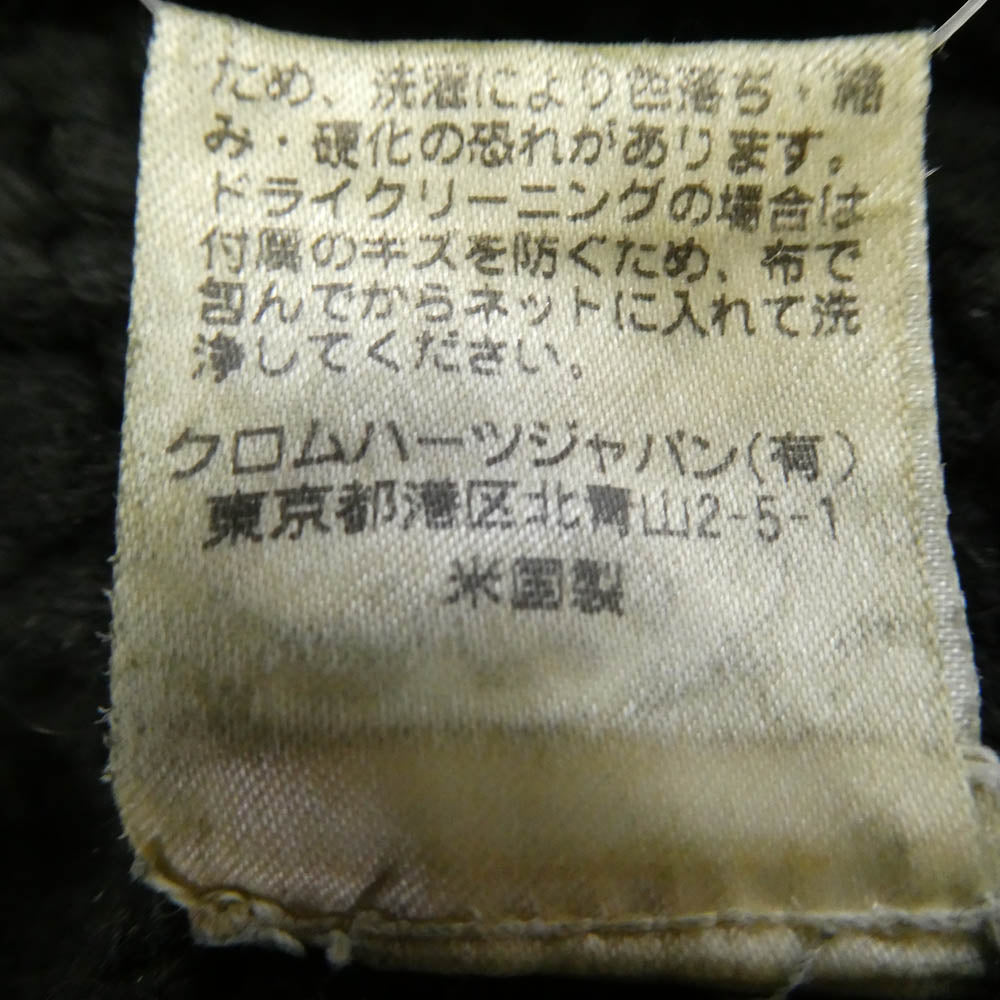 ため、洗濯により色落ち・縮
み・硬化の恐れがあります。
ドライクリーニングの場合は
付属のキズを防ぐため、布で
包んでからネットに入れて洗
浄してください。
クロムハーツジャパン(有)
東京都港区北青山2-5-1
米国製